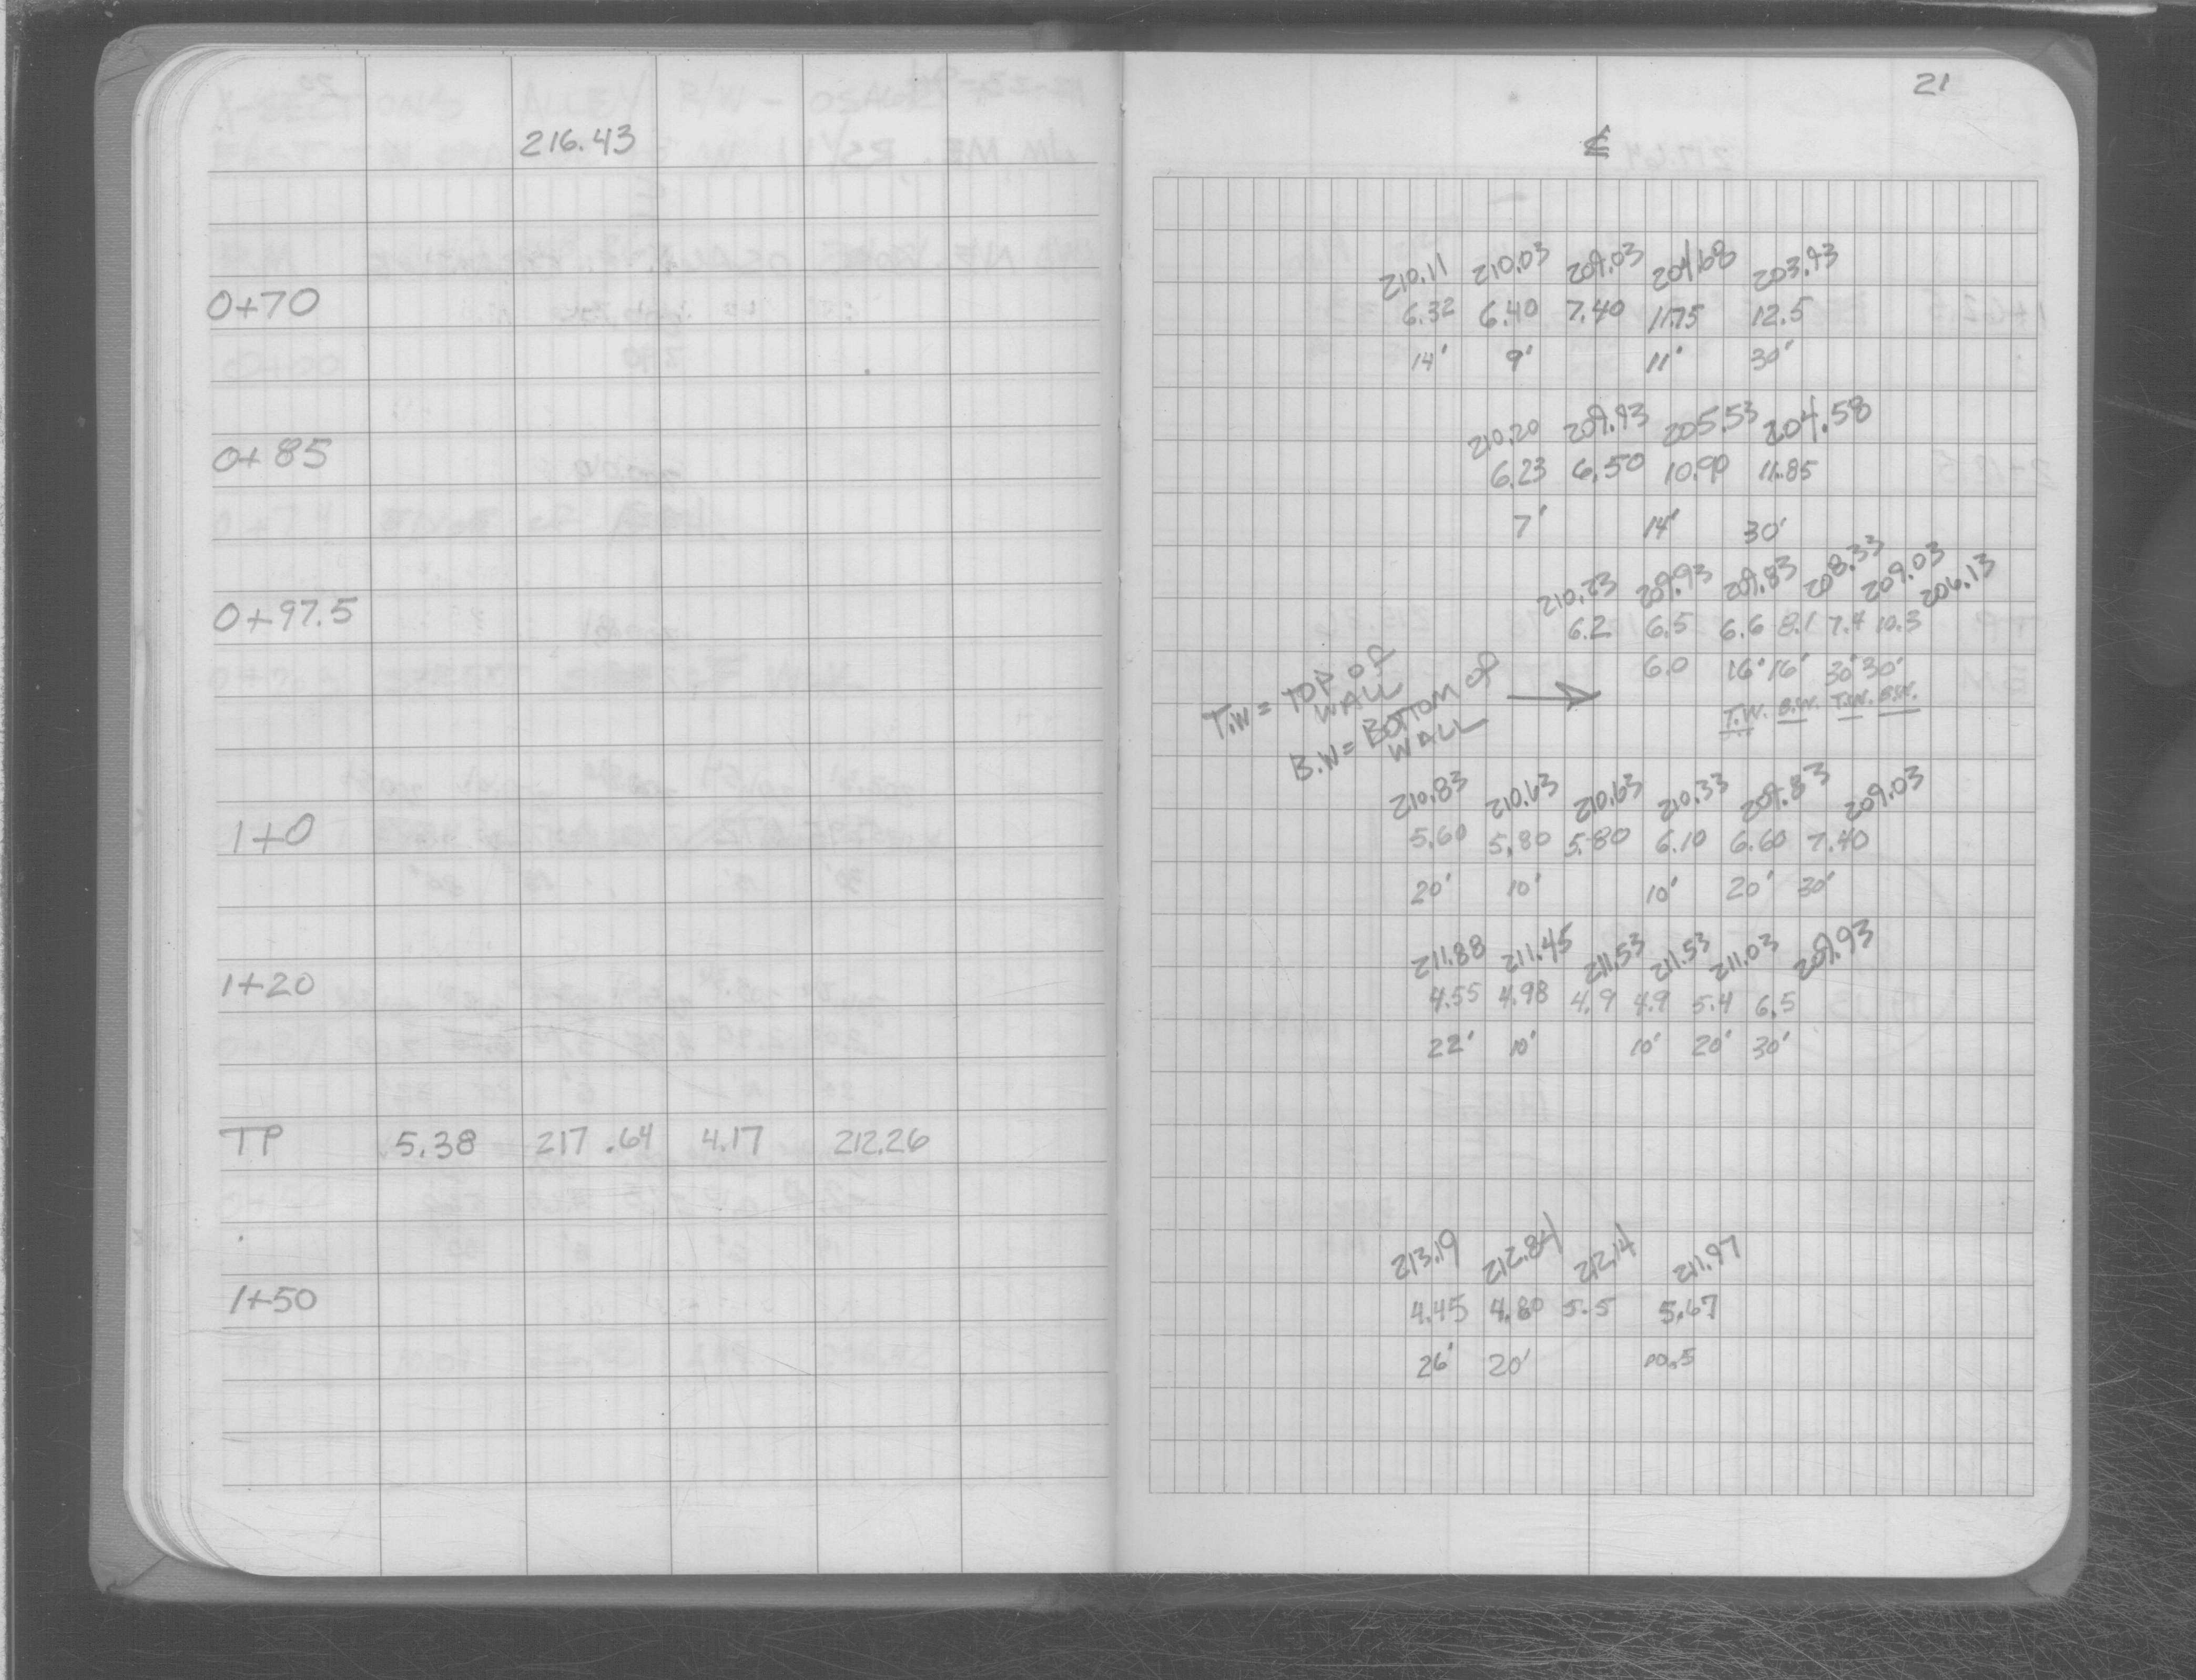 216.43
0+70
0+85
0+97.5
1+0
1+20
TP 5.38 217.64 4.17 212.26
1+50
21
℄
210.11 210.03 209.03 204.68 203.93
6.32 6.40 7.40 11.75 12.5
14' 9' 11' 30'
210.20 209.93 205.53 204.58
6.23 6.50 10.90 11.85
7' 14' 30'
210.23 209.93 209.83 208.33 209.03 206.13
6.2 6.5 6.6 8.1 7.4 10.3
6.0 16' 16' 30' 30'
T.W. B.W. T.W. B.W.
T.W = TOP OF
WALL
B.W = BOTTOM OF
WALL
210.83 210.63 210.63 210.33 209.83 209.03
5.60 5.80 5.80 6.10 6.60 7.40
20' 10' 10' 20' 30'
211.88 211.45 211.53 211.53 211.03 209.93
4.55 4.98 4.9 4.9 5.4 6.5
22' 10' 10' 20' 30'
213.19 212.84 212.14 211.97
4.45 4.80 5.5 5.67
26' 20'